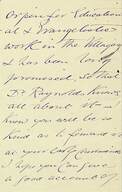 Orphans for Education
at & Evangelistic
work in the Villages
& has been long
promised, so that
Dr Raynolds knows
all about it — I
know you will be so
kind as to forward it
as your early convenience
I hope you can give
a good account of